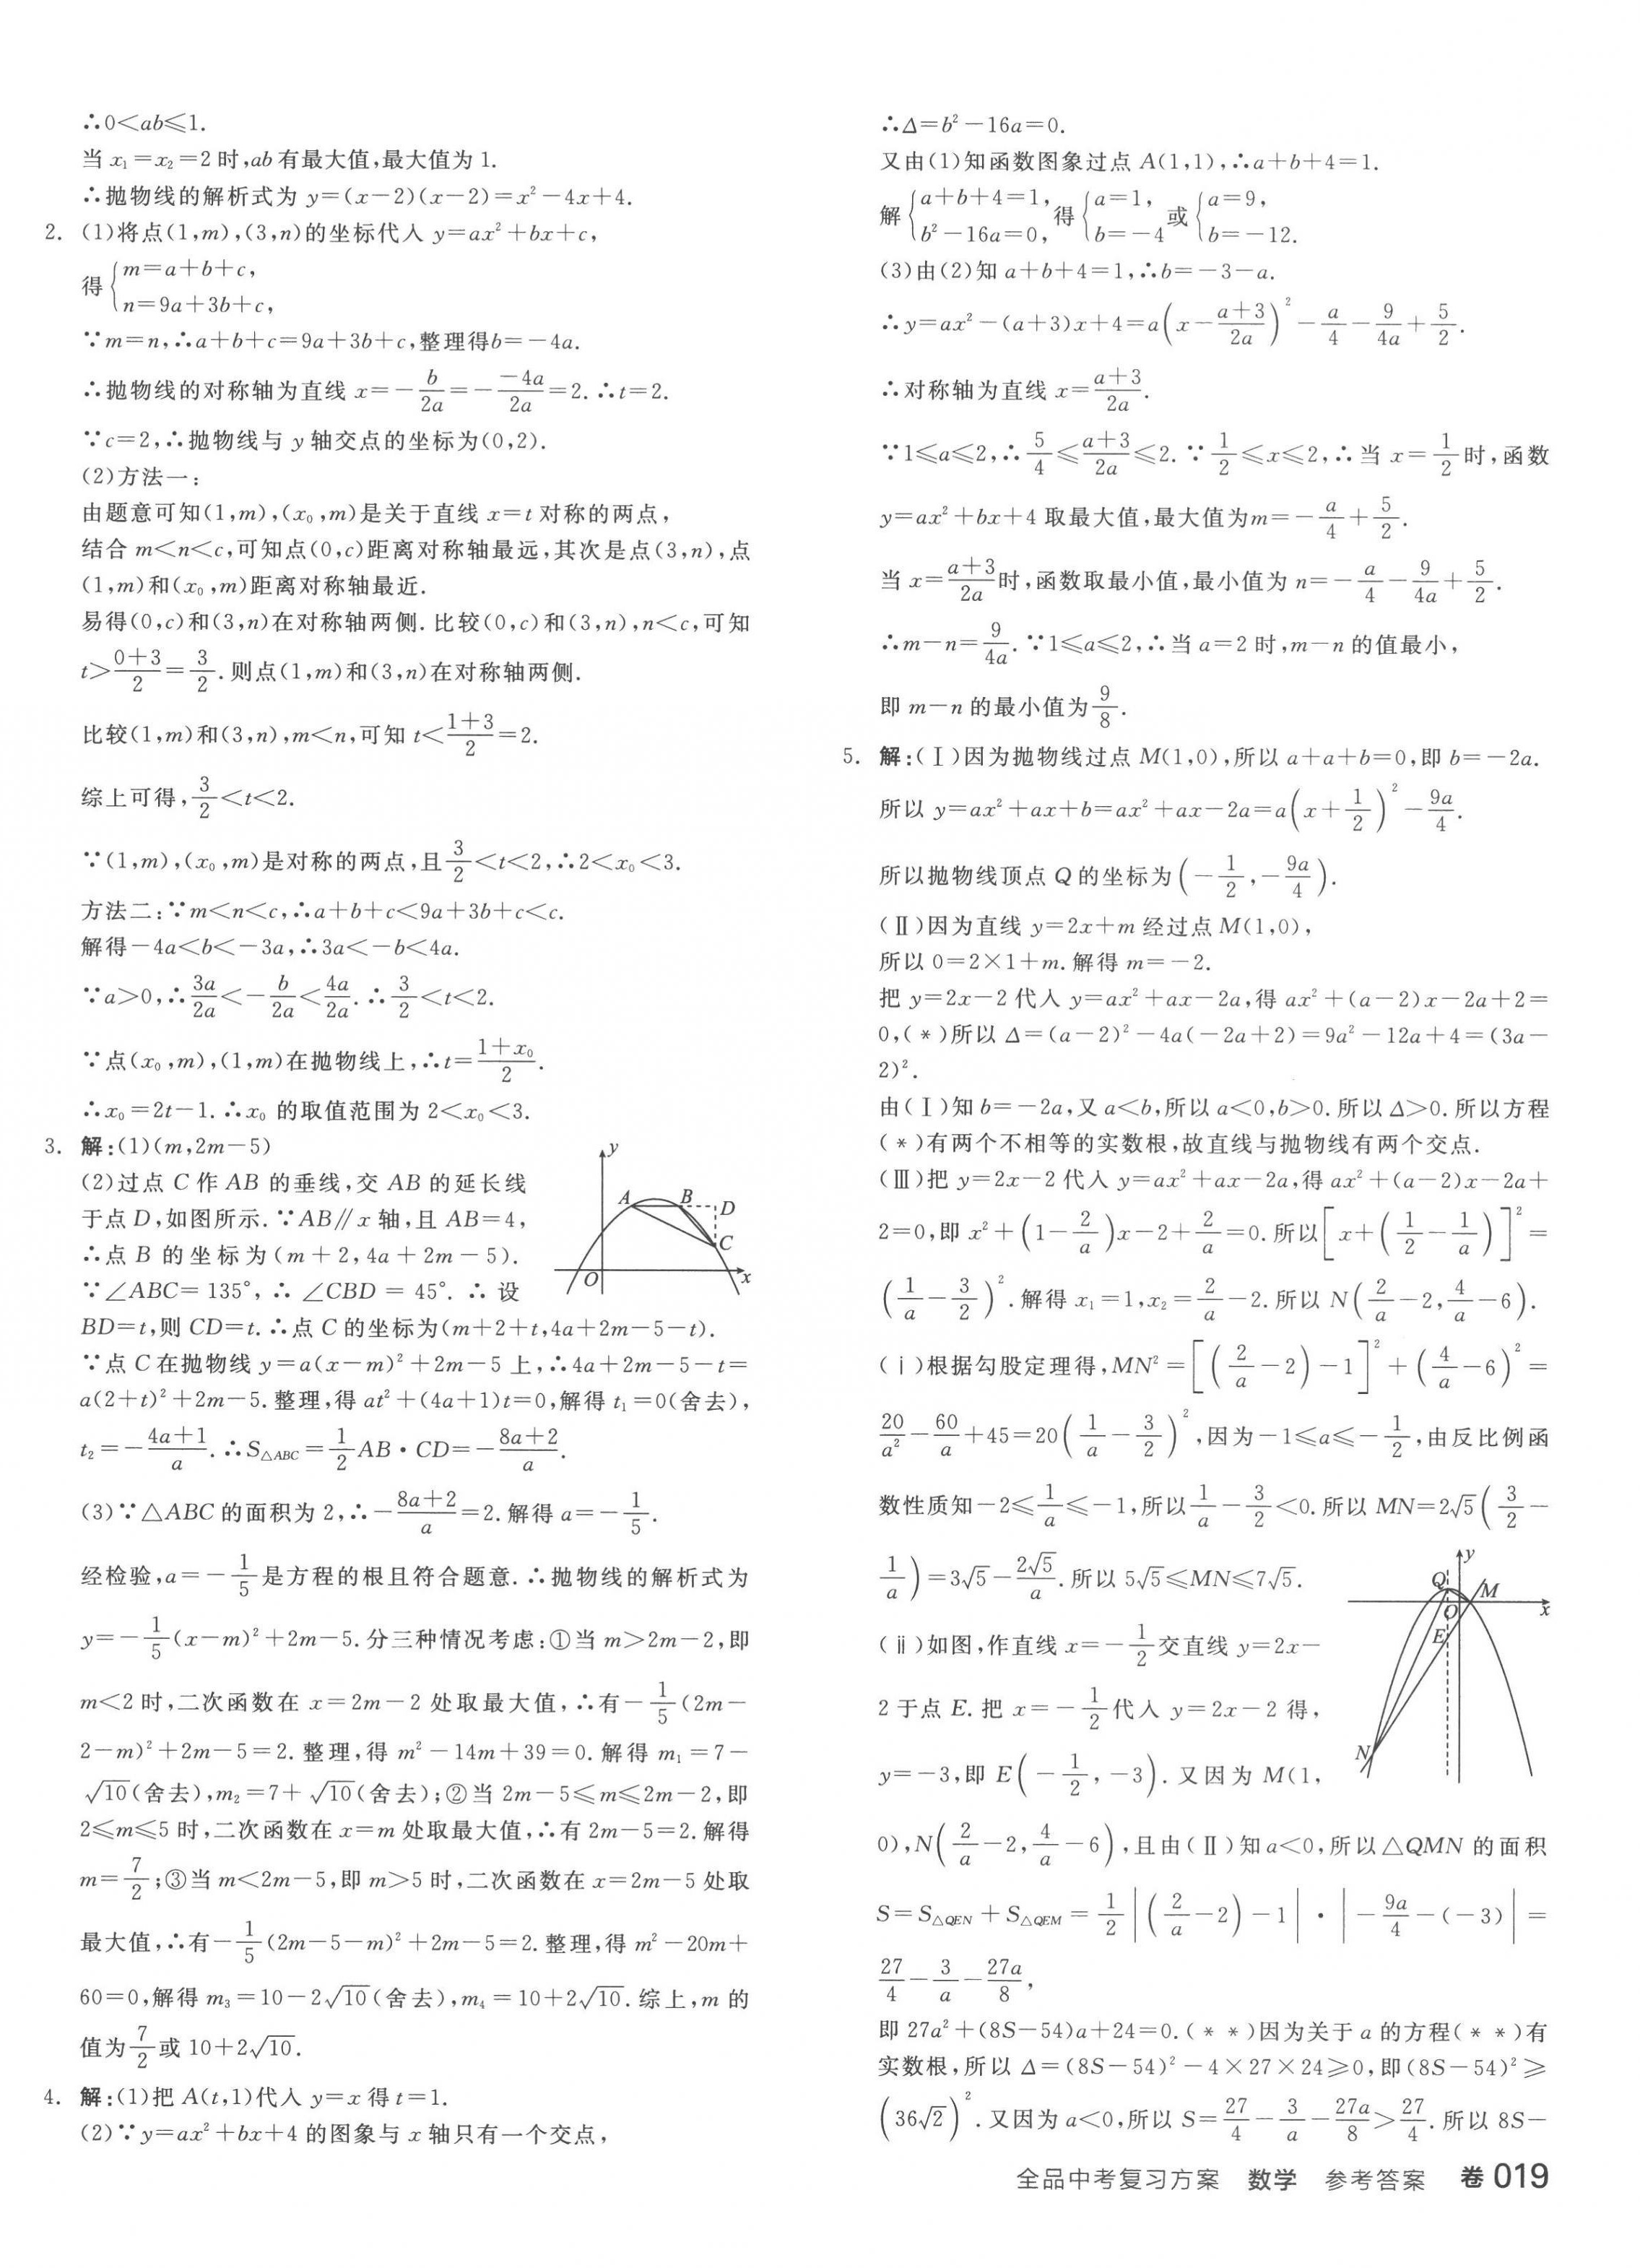 ∴0<ab≤1.
当 x₁=x₂=2 时,ab 有最大值,最大值为 1.
∴抛物线的解析式为 y=(x-2)(x-2)=x²-4x+4.
2. (1)将点(1,m),(3,n)的坐标代入 y=ax²+bx+c,
得{m=a+b+c,
n=9a+3b+c,
∵m=n,∴a+b+c=9a+3b+c,整理得b=-4a.
∴抛物线的对称轴为直线 x=-b/2a=-(-4a)/2a=2.∴t=2.
∵c=2,∴抛物线与 y 轴交点的坐标为(0,2).
(2)方法一:
由题意可知(1,m),(x₀,m)是关于直线 x=t 对称的两点,
结合 m<n<c,可知点(0,c)距离对称轴最远,其次是点(3,n),点
(1,m)和(x₀,m)距离对称轴最近.
易得(0,c)和(3,n)在对称轴两侧.比较(0,c)和(3,n),n<c,可知
t>(0+3)/2=3/2.则点(1,m)和(3,n)在对称轴两侧.
比较(1,m)和(3,n),m<n,可知 t<(1+3)/2=2.
综上可得,3/2<t<2.
∵(1,m),(x₀,m)是对称的两点,且3/2<t<2,∴2<x₀<3.
方法二:∵m<n<c,∴a+b+c<9a+3b+c<c.
解得-4a<b<-3a,∴3a<-b<4a.
∵a>0,∴3a/2a<-b/2a<4a/2a.∴3/2<t<2.
∵点(x₀,m),(1,m)在抛物线上,∴t=(1+x₀)/2.
∴x₀=2t-1.∴x₀ 的取值范围为 2<x₀<3.
3. 解:(1)(m,2m-5)
(2)过点 C 作 AB 的垂线,交 AB 的延长线
于点 D,如图所示.∵AB∥x 轴,且 AB=4,
∴点 B 的坐标为(m+2,4a+2m-5).
∵∠ABC=135°,∴∠CBD=45°.∴设
y
A
B
D
C
O
x
BD=t,则 CD=t.∴点 C 的坐标为(m+2+t,4a+2m-5-t).
∵点 C 在抛物线 y=a(x-m)²+2m-5 上,∴4a+2m-5-t=
a(2+t)²+2m-5.整理,得 at²+(4a+1)t=0,解得 t₁=0(舍去),
t₂=-(4a+1)/a.∴S△ABC=1/2 AB·CD=-(8a+2)/a.
(3)∵△ABC 的面积为 2,∴-(8a+2)/a=2.解得 a=-1/5.
经检验,a=-1/5是方程的根且符合题意.∴抛物线的解析式为
y=-1/5(x-m)²+2m-5.分三种情况考虑:①当 m>2m-2,即
m<2 时,二次函数在 x=2m-2 处取最大值,∴有-1/5(2m-
2-m)²+2m-5=2.整理,得 m²-14m+39=0.解得 m₁=7-
√10(舍去),m₂=7+√10(舍去);②当 2m-5≤m≤2m-2,即
2≤m≤5 时,二次函数在 x=m 处取最大值,∴有 2m-5=2.解得
m=7/2;③当 m<2m-5,即 m>5 时,二次函数在 x=2m-5 处取
最大值,∴有-1/5(2m-5-m)²+2m-5=2.整理,得 m²-20m+
60=0,解得 m₃=10-2√10(舍去),m₄=10+2√10.综上,m 的
值为7/2或 10+2√10.
4. 解:(1)把 A(t,1)代入 y=x 得 t=1.
(2)∵y=ax²+bx+4 的图象与 x 轴只有一个交点,
∴Δ=b²-16a=0.
又由(1)知函数图象过点 A(1,1),∴a+b+4=1.
解{a+b+4=1, 得{a=1, 或{a=9,
b²-16a=0, b=-4 b=-12.
(3)由(2)知 a+b+4=1,∴b=-3-a.
∴y=ax²-(a+3)x+4=a(x-(a+3)/2a)²-a/4-9/4a+5/2.
∴对称轴为直线 x=(a+3)/2a.
∵1≤a≤2,∴5/4≤(a+3)/2a≤2.∵1/2≤x≤2,∴当 x=1/2时,函数
y=ax²+bx+4 取最大值,最大值为m=-a/4+5/2.
当 x=(a+3)/2a时,函数取最小值,最小值为 n=-a/4-9/4a+5/2.
∴m-n=9/4a.∵1≤a≤2,∴当 a=2 时,m-n 的值最小,
即 m-n 的最小值为9/8.
5. 解:(Ⅰ)因为抛物线过点 M(1,0),所以 a+a+b=0,即 b=-2a.
所以 y=ax²+ax+b=ax²+ax-2a=a(x+1/2)²-9a/4.
所以抛物线顶点 Q 的坐标为(-1/2,-9a/4).
(Ⅱ)因为直线 y=2x+m 经过点 M(1,0),
所以 0=2×1+m.解得 m=-2.
把 y=2x-2 代入 y=ax²+ax-2a,得 ax²+(a-2)x-2a+2=
0,(*)所以 Δ=(a-2)²-4a(-2a+2)=9a²-12a+4=(3a-
2)².
由(Ⅰ)知 b=-2a,又 a<b,所以 a<0,b>0.所以 Δ>0.所以方程
(*)有两个不相等的实数根,故直线与抛物线有两个交点.
(Ⅲ)把 y=2x-2 代入 y=ax²+ax-2a,得 ax²+(a-2)x-2a+
2=0,即 x²+(1-2/a)x-2+2/a=0.所以[x+(1/2-1/a)]²=
(1/a-3/2)².解得 x₁=1,x₂=2/a-2.所以 N(2/a-2,4/a-6).
(ⅰ)根据勾股定理得,MN²=[(2/a-2)-1]²+(4/a-6)²=
20/a²-60/a+45=20(1/a-3/2)²,因为-1≤a≤-1/2,由反比例函
数性质知-2≤1/a≤-1,所以1/a-3/2<0.所以 MN=2√5(3/2-
1/a)=3√5-2√5/a.所以 5√5≤MN≤7√5.
(ⅱ)如图,作直线 x=-1/2交直线 y=2x-
2 于点 E.把 x=-1/2代入 y=2x-2 得,
y=-3,即 E(-1/2,-3).又因为 M(1,
y
Q
M
O
x
E
N
0),N(2/a-2,4/a-6),且由(Ⅱ)知 a<0,所以△QMN 的面积
S=S△QEN+S△QEM=1/2|(2/a-2)-1|·|-9a/4-(-3)|=
27/4-3/a-27a/8,
即 27a²+(8S-54)a+24=0.(**)因为关于 a 的方程(**)有
实数根,所以 Δ=(8S-54)²-4×27×24≥0,即(8S-54)²≥
(36√2)².又因为 a<0,所以 S=27/4-3/a-27a/8>27/4.所以 8S-
全品中考复习方案 数学 参考答案 卷 019